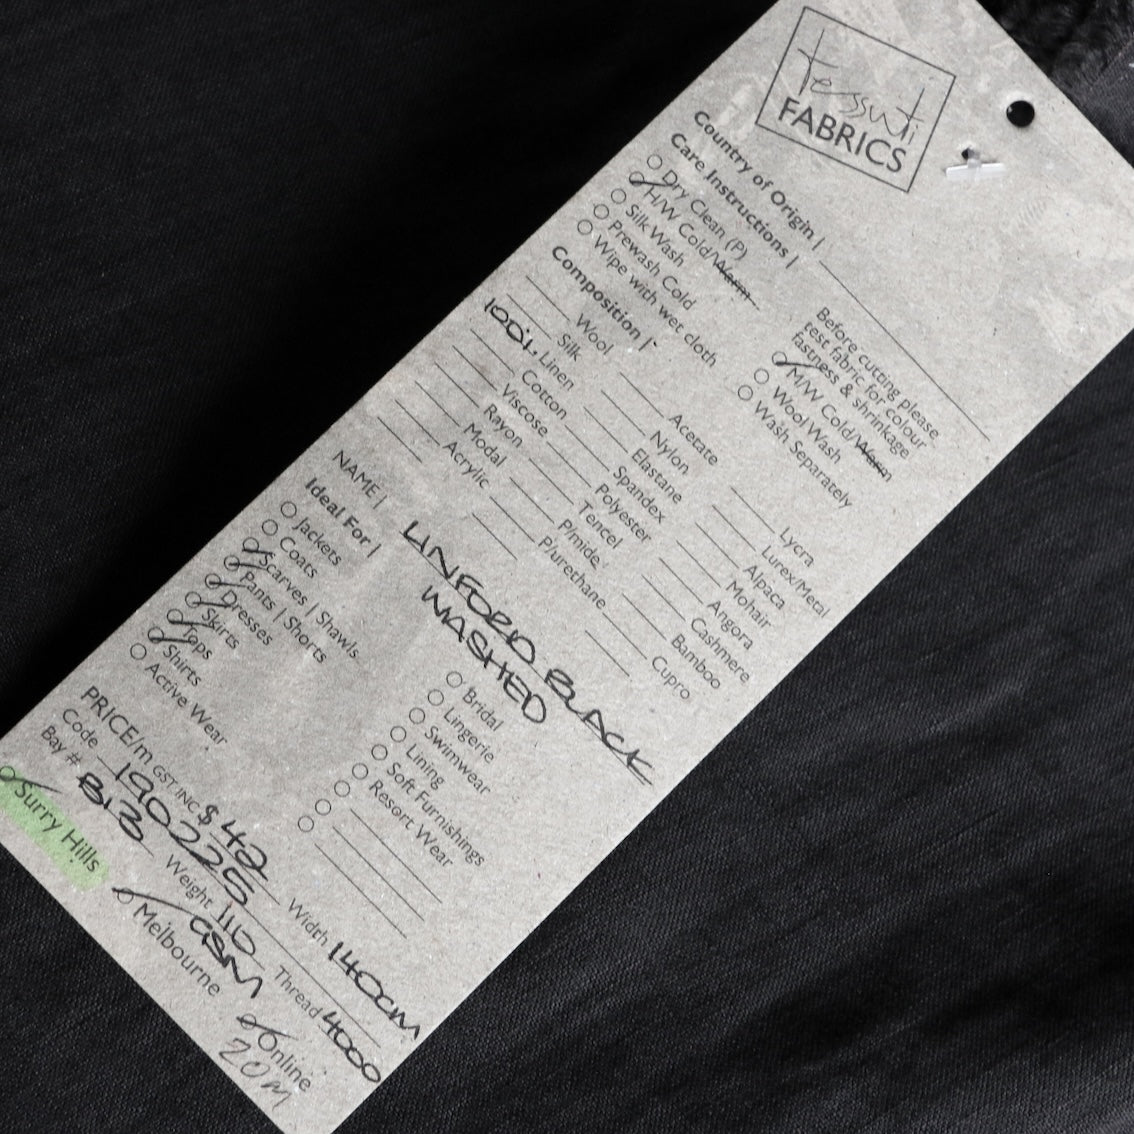 tessuti
FABRICS
Country of Origin |
Care Instructions |
Dry Clean (P)
H/W Cold/Warm
Silk Wash
Prewash Cold
Wipe with wet cloth
Before cutting please
test fabric for colour
fastness & shrinkage
M/W Cold/Warm
Wool Wash
Wash Separately
Composition |
Wool
Silk
100% Linen
Cotton
Viscose
Rayon
Modal
Acrylic
Acetate
Nylon
Elastane
Spandex
Polyester
Tencel
P/mide
P/urethane
Lycra
Lurex/Metal
Alpaca
Mohair
Angora
Cashmere
Bamboo
Cupro
NAME | LINFORD BLACK
WASHED
Ideal For |
Jackets
Coats
Scarves | Shawls
Pants | Shorts
Dresses
Skirts
Tops
Shirts
Active Wear
Bridal
Lingerie
Swimwear
Lining
Soft Furnishings
Resort Wear
PRICE/m GST INC $42
Code 190225
Width 140CM
Bay # B13
Weight 116
GSM
Thread 4000
Surry Hills
Melbourne
Online
20M